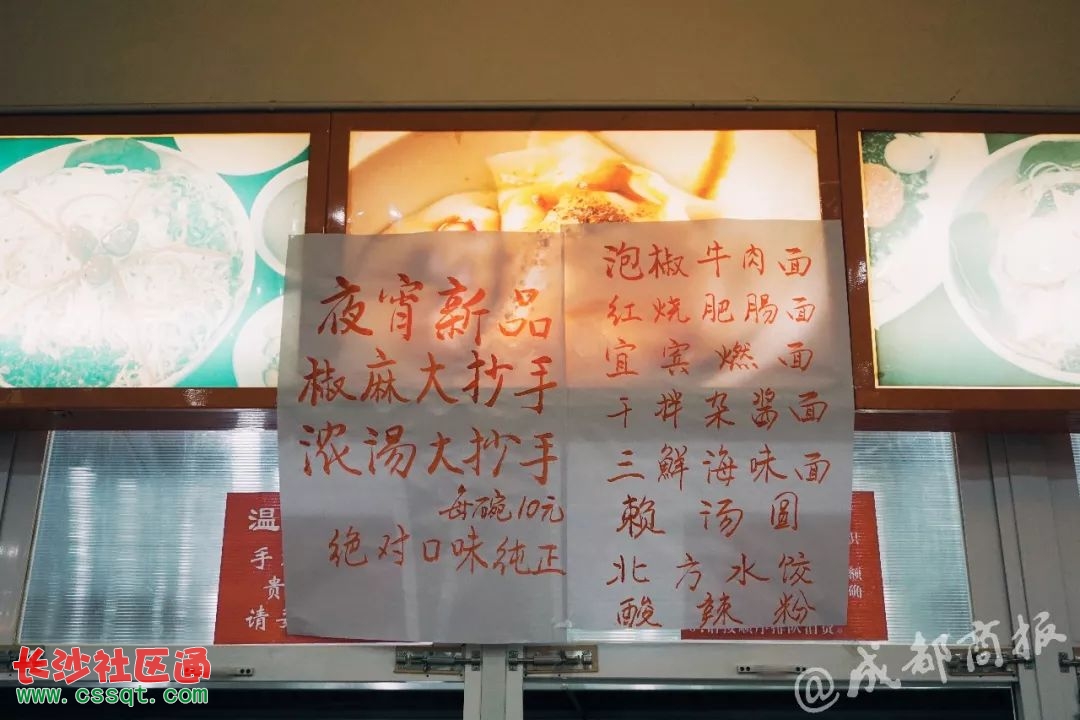 夜宵新品
椒麻大抄手
浓汤大抄手
每碗10元
绝对口味纯正
泡椒牛肉面
红烧肥肠面
宜宾燃面
干拌杂酱面
三鲜海味面
赖汤圆
北方水饺
酸辣粉
温
手
贵
请
额
确
长沙社区通
www.cssqt.com
@成都商报